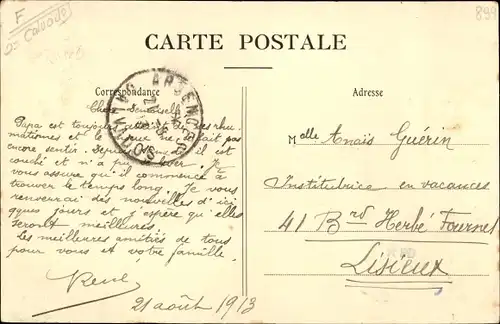 F
Calvados
899
CARTE POSTALE
Correspondance
Adresse
ARGENCES
CALVADOS
Chère Demoiselle
Papa est toujours atteint de ses rhu
matismes et la ne fait pas
encore sentir. Depuis il est
couché et n'a pu se lever. Je
vous assure qu'il commence à
trouver le temps long. Je vous
renverrai des nouvelles d'ici
qques jours et j'espère qu'elles
seront meilleures
Les meilleures amitiés de tous
pour vous et votre famille.
René
21 août 1913
Melle Anaïs Guérin
Institutrice en vacances
41 Brd Herbé Fournet
Lisieux